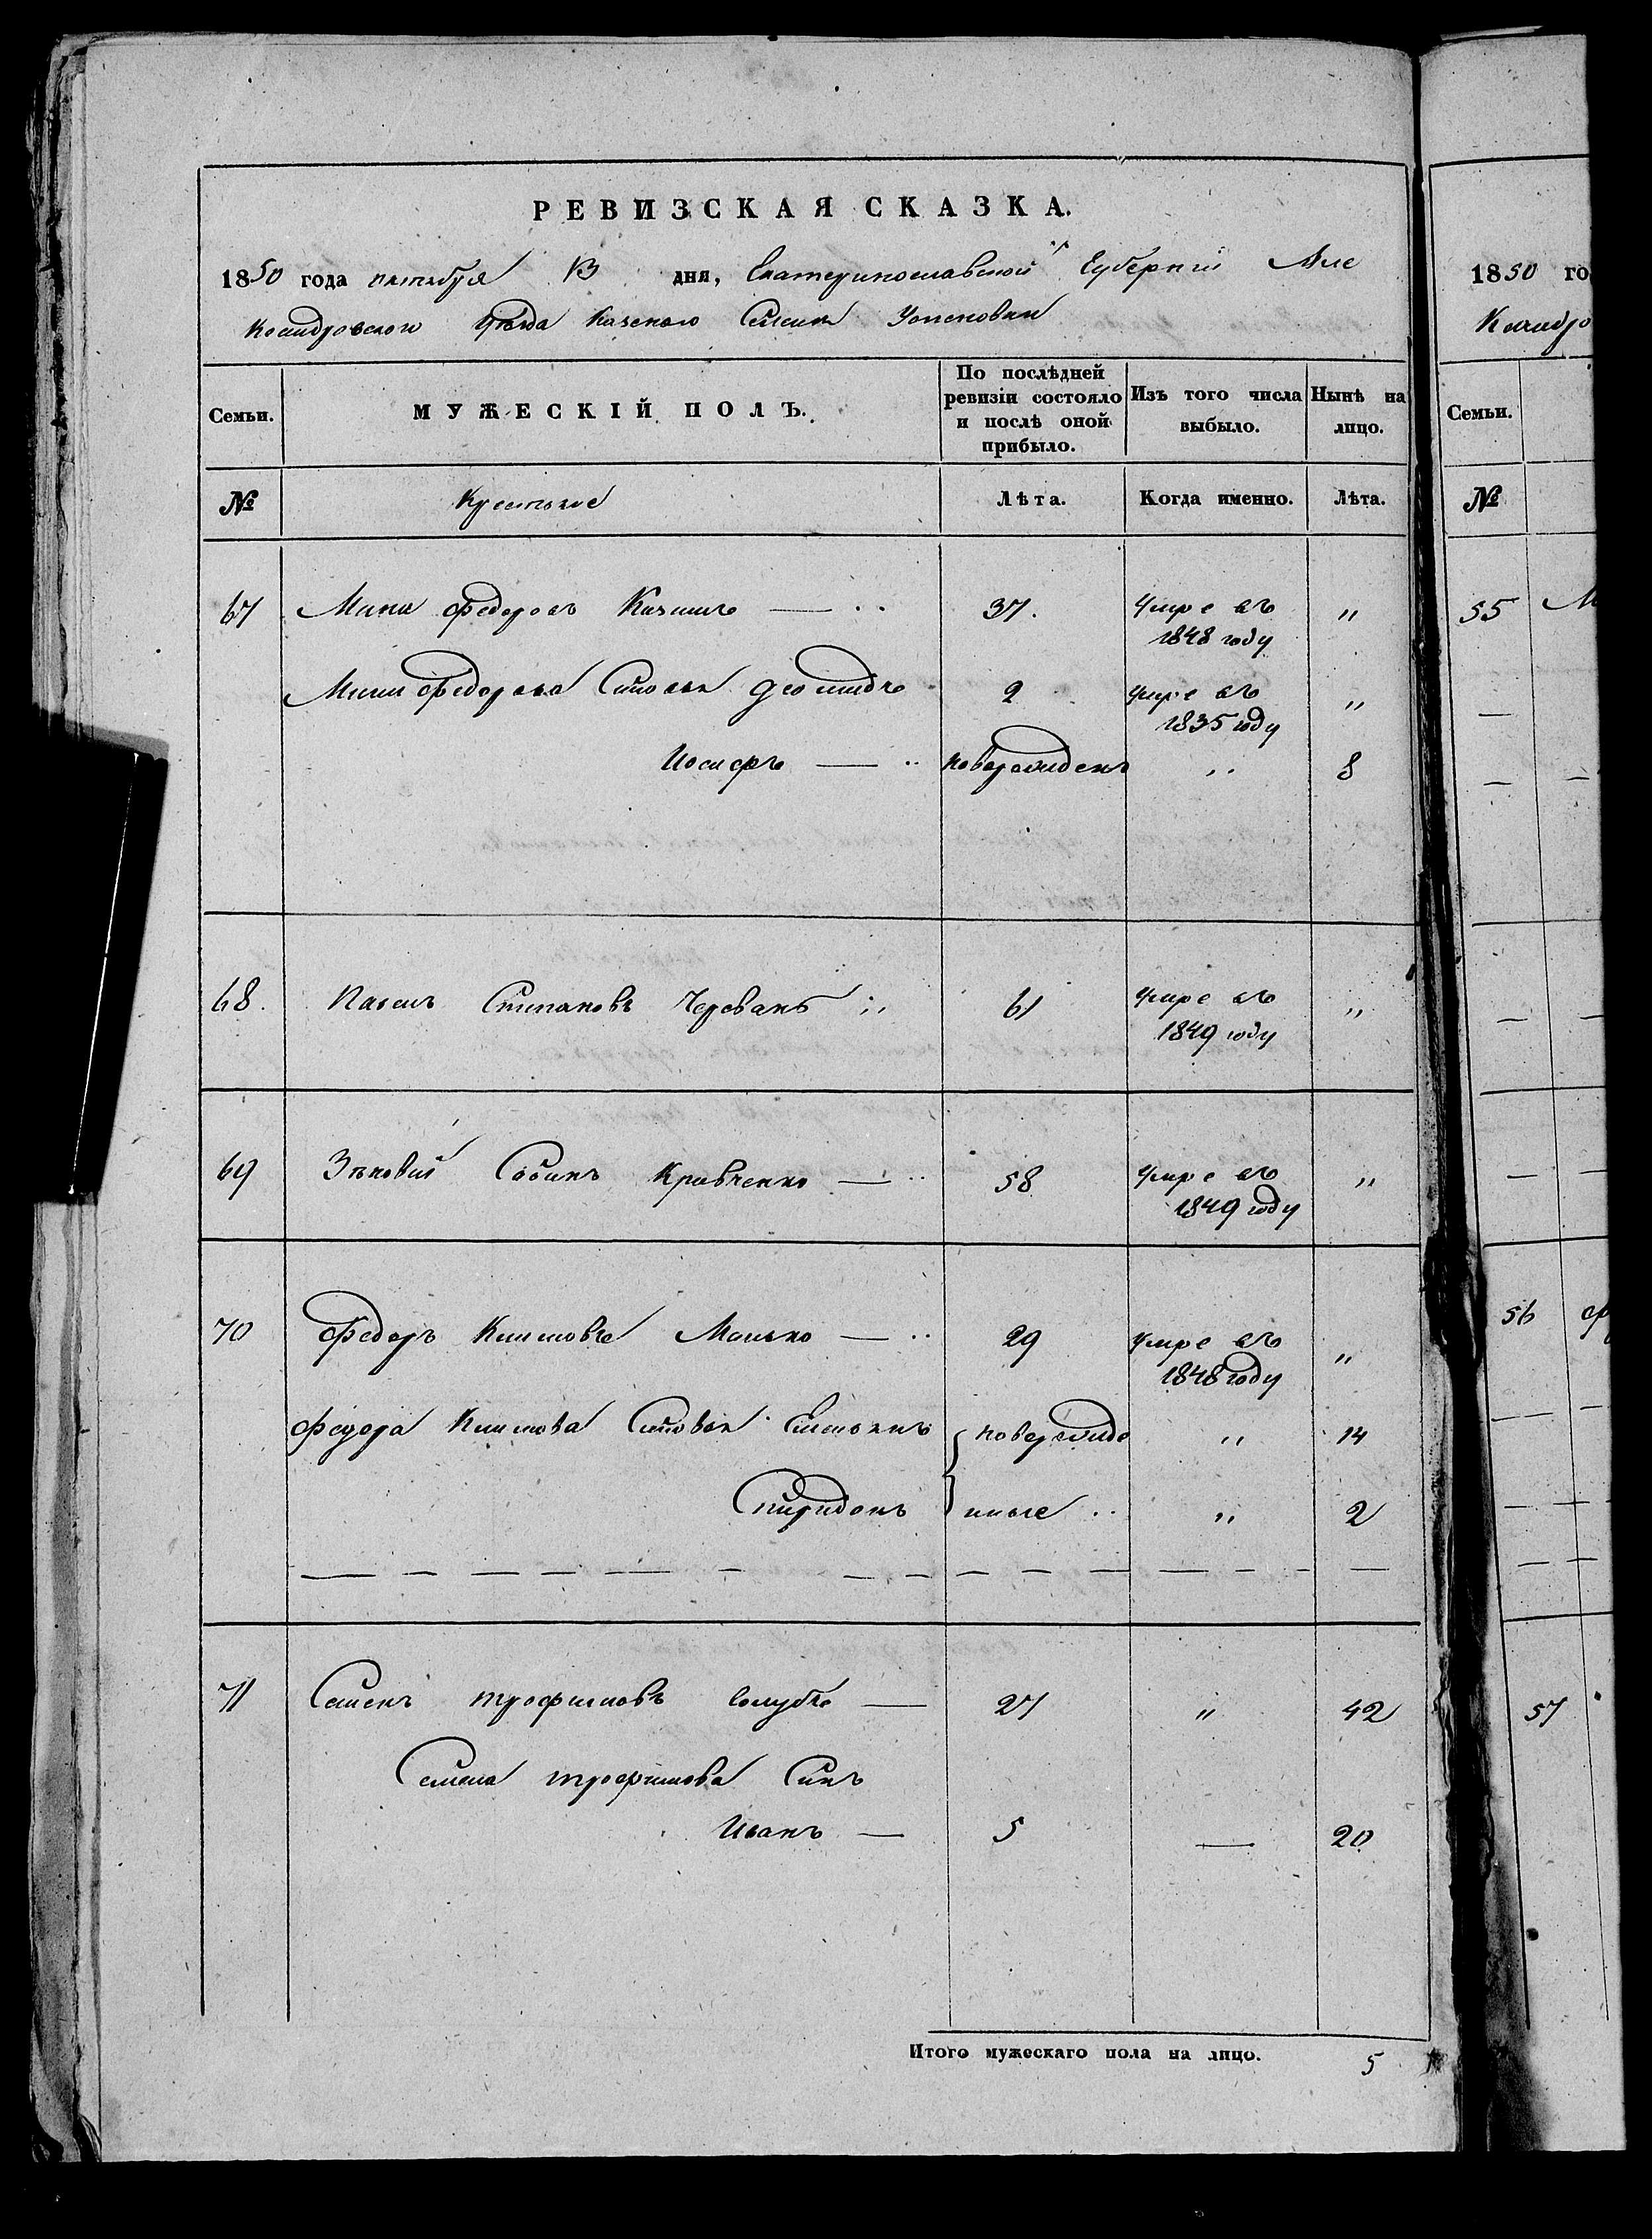 РЕВИЗСКАЯ СКАЗКА.
1850 года октября 13 дня, Екатеринославской Губернии Але
ксандровского Уѣзда Казеного Селения
Семьи. МУЖЕСКІЙ ПОЛЪ. По послѣдней ревизіи состояло и послѣ оной прибыло. Изъ того числа выбыло. Нынѣ на лицо.
№ Крестьяне Лѣта. Когда именно. Лѣта.
67 Мина Федоровъ — 37. умре въ 1848 году "
Мины Федорова Синовья 9 умре въ 1835 году "
Иосифъ — новорожденъ " 8
68. Павелъ Степановъ Черевань 61 умре въ 1849 году "
69 Зѣновий Савинъ Кравченко — 58 умре въ 1849 году "
70 Федоръ Климовъ Манько — 29 умре въ 1848 году "
Федора Климова Синовья Емельянъ новорожде " 14
Спиридонъ нные " 2
71 Семенъ Трофимовъ Голубъ — 27 " 42
Семена Трофимова Синъ
Иванъ — 5 — 20
Итого мужескаго пола на лицо. 5
1850 го
Ксандро
Семьи.
№
55 М
56
57